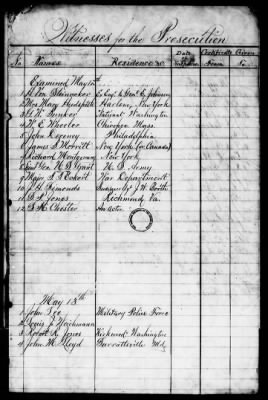 Witnesses for the Prosecution
Date Certificate Given
No Names Residence &c From To
Examined May 12th
1 H Von Steinaker
2 Mrs Mary Hudspeth Harlem, New York
3 Bunker Patient Washington
4 W E Wheeler Chicopee Mass.
5 John Cooney Philadelphia
6 James Merritt New York (or Canada)
7 Richard Montgomery New York
8 Lieut Gen. U S Grant U S Army
9 Major Eckert War Department
10 J H Simonds Swanin by J W Booth
11 S. P. Jones Richmond Va.
12 S K Chester An Actor
May 13th
1 John Lee Military Police Force
2 Louis J Weichmann
3 Robert R. Jones Kirkwood Washington
4 John M Lloyd Surrattsville Md